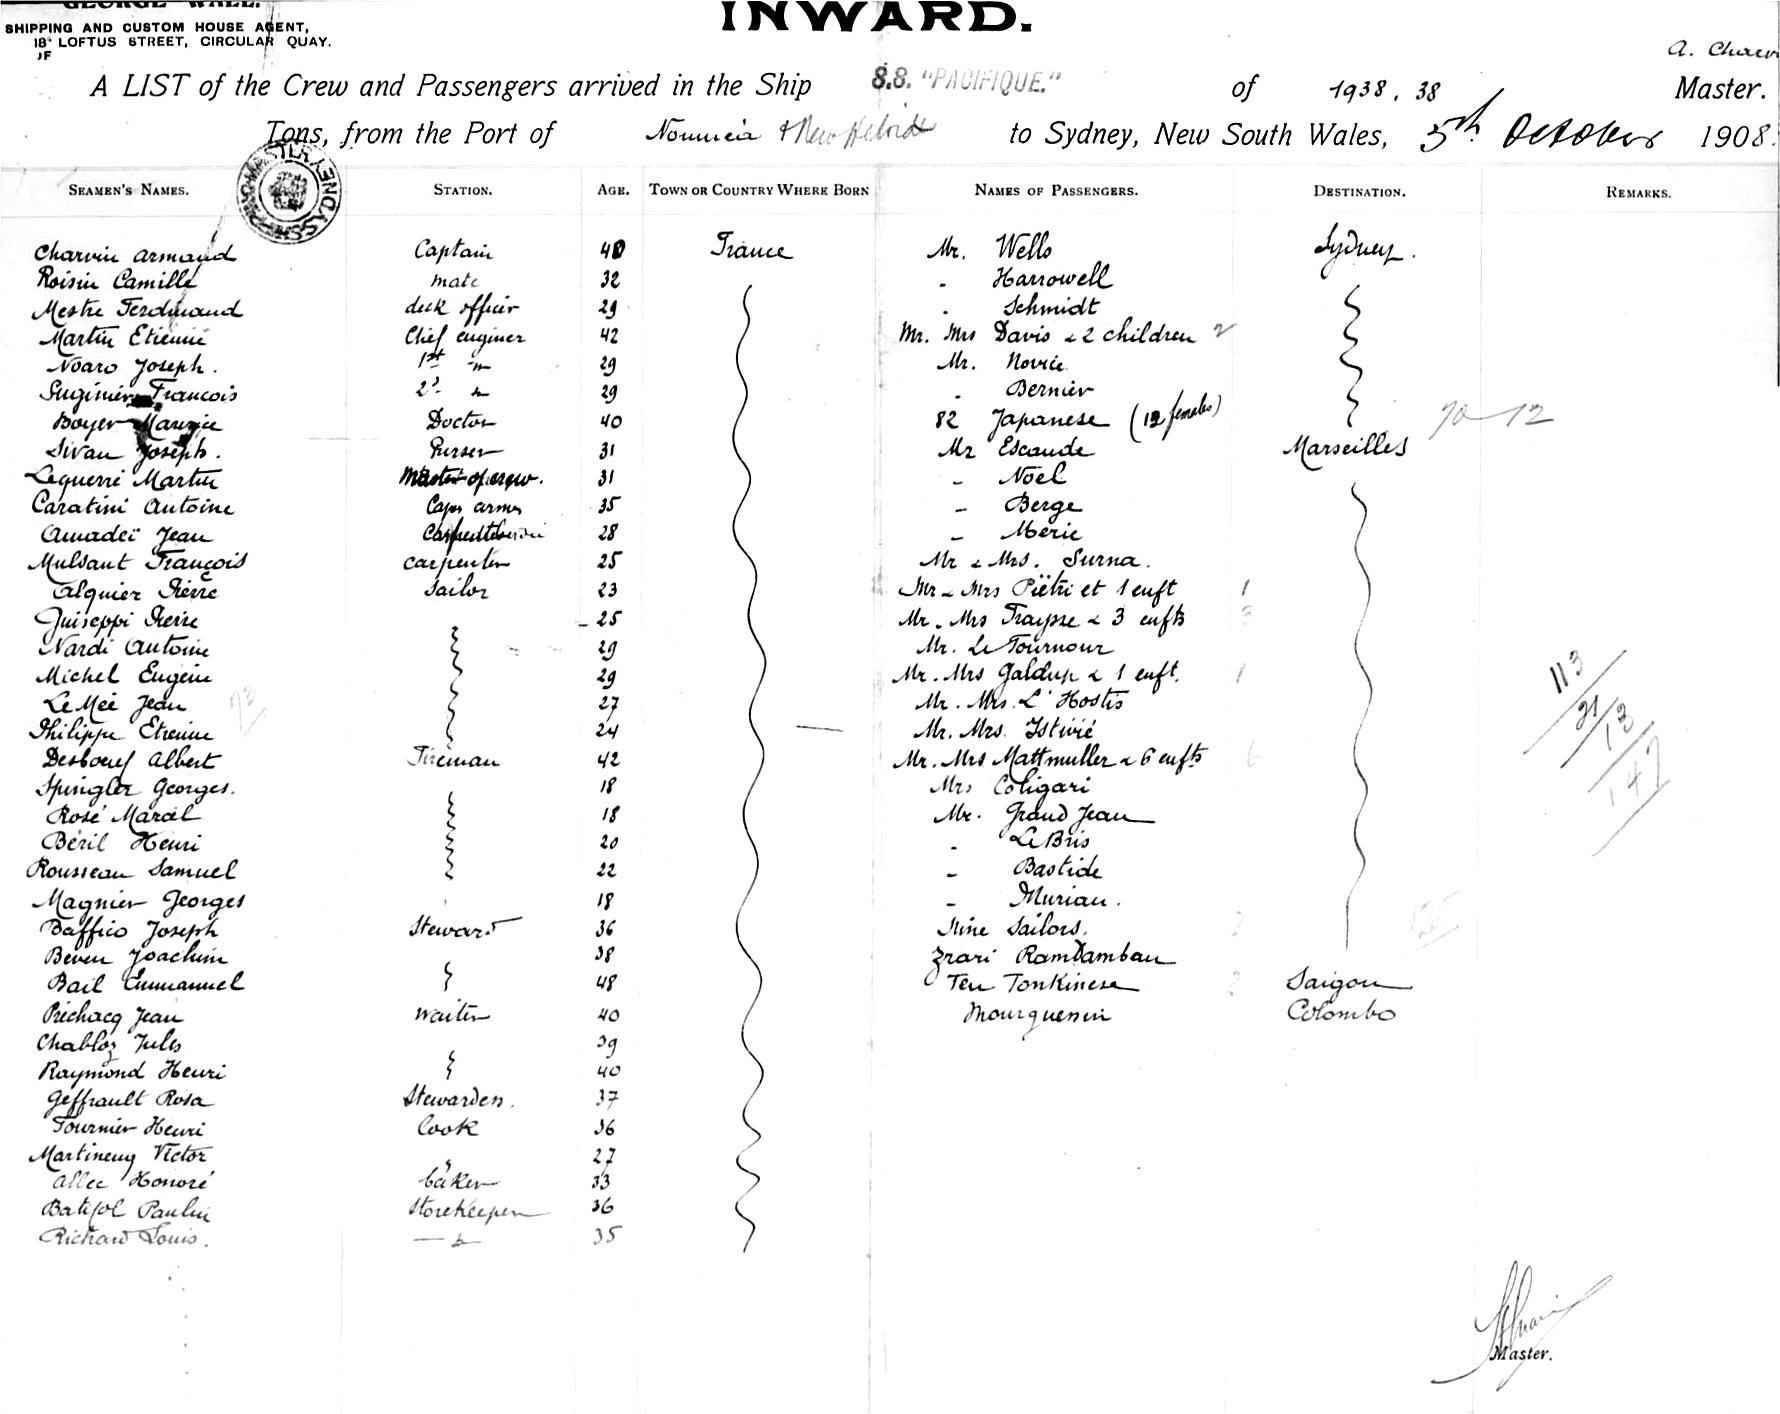 GEORGE WALL.
SHIPPING AND CUSTOM HOUSE AGENT,
18 LOFTUS STREET, CIRCULAR QUAY.
OF
INWARD.
A LIST of the Crew and Passengers arrived in the Ship S.S. "PACIFIQUE." of 1938.38 Master.
Tons, from the Port of Noumea & New Hebrides to Sydney, New South Wales, 5th October 1908.
SEAMEN'S NAMES. STATION. AGE. TOWN OR COUNTRY WHERE BORN NAMES OF PASSENGERS. DESTINATION. REMARKS.
Charvin Armand Captain 40 France Mr. Wells Sydney.
Roisin Camille mate 32 " Harrowell
Mestre Ferdinand deck officer 29 " Schmidt
Martin Etienne Chief enginer 42 Mr. Mrs Davis & 2 children 2
Noaro Joseph. 1st " 29 Mr. Novic
Suginier François 2d " 29 " Bernier
Boyer Maurice Doctor 40 82 Japanese (12 females) 70 12
Sivan Joseph. Purser 31 Mr Escande Marseilles
Lequerré Martin Master of crew. 31 " Noël
Caratini Antoine Cap. armes 35 " Berge
Amadeï Jean 28 " Meric
Mulsant François carpenter 25 Mr & Mrs. Surna.
Alquier Pierre Sailor 23 Mr & Mrs Piëtri et 1 enft 1
Juiseppi Pierre 25 Mr. Mrs Traysse & 3 enfts 3
Nardi Antoine 29 Mr. Le Tournour
Michel Eugène 29 Mr. Mrs Galdup & 1 enft. 1
Le Mée Jean 27 Mr. Mrs. L'Hostis
Philippe Etienne 24 Mr. Mrs. Istivié
Desboeuf Albert Fireman 42 Mr. Mrs Mattmuller & 6 enfts 6
Spingler Georges. 18 Mrs Coligari
Rosé Marcel 18 Mr. Grand Jean
Béril Henri 20 " Le Bris
Rousseau Samuel 22 " Bastide
Magnier Georges 18 " Murian.
Baffico Joseph Steward 36 Nine Sailors.
Beven Joachim 38 Zrari RamDamban
Bail Emmanuel 48 Ten Tonkinese Saigon
Préchacq Jean Waiter 40 Mourguesin Colombo
Chabloz Jules 39
Raymond Henri 40
Geffrault Rosa Stewardess. 37
Tournier Henri Cook 36
Martineng Victor " 27
Allec Honoré baker 33
Batifol Paulin Storekeeper 36
Richard Louis. " 35
113
21
13
147
Master.